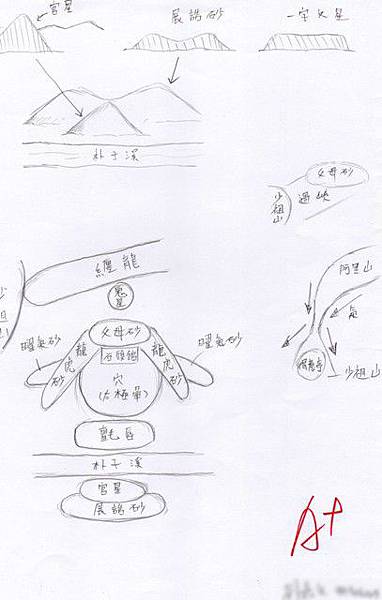 官星
展誥砂
一字文星
朴子溪
父母砂
過峽
少祖山
阿里山
氣
少祖山
纏龍
鬼星
父母砂
曜氣砂
龍虎砂
龍虎砂
曜氣砂
穴
(太極暈)
氈唇
朴子溪
官星
展誥砂
A+